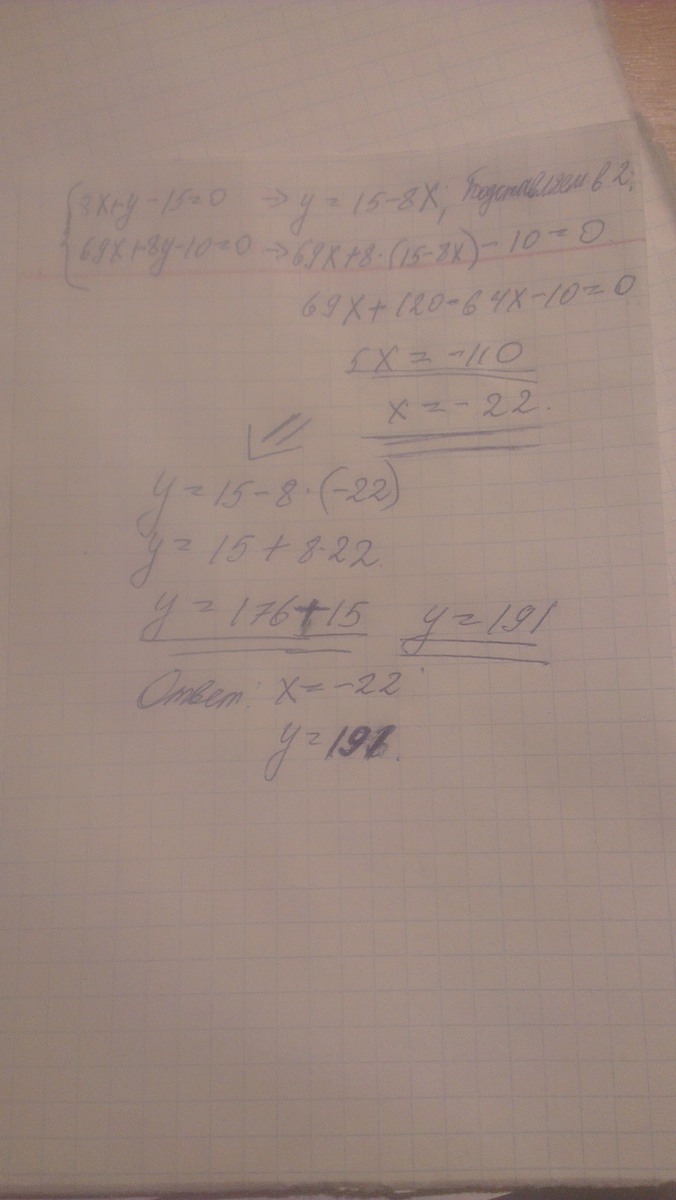 { 8x+y-15=0 → y = 15-8x, Подставляем в 2;
69x+8y-10=0 → 69x+8·(15-8x)-10=0
69x+120-64x-10=0
5x=-110
x=-22.
y=15-8·(-22)
y=15+8·22.
y=176+15 y=191
Ответ: x=-22
y=191.